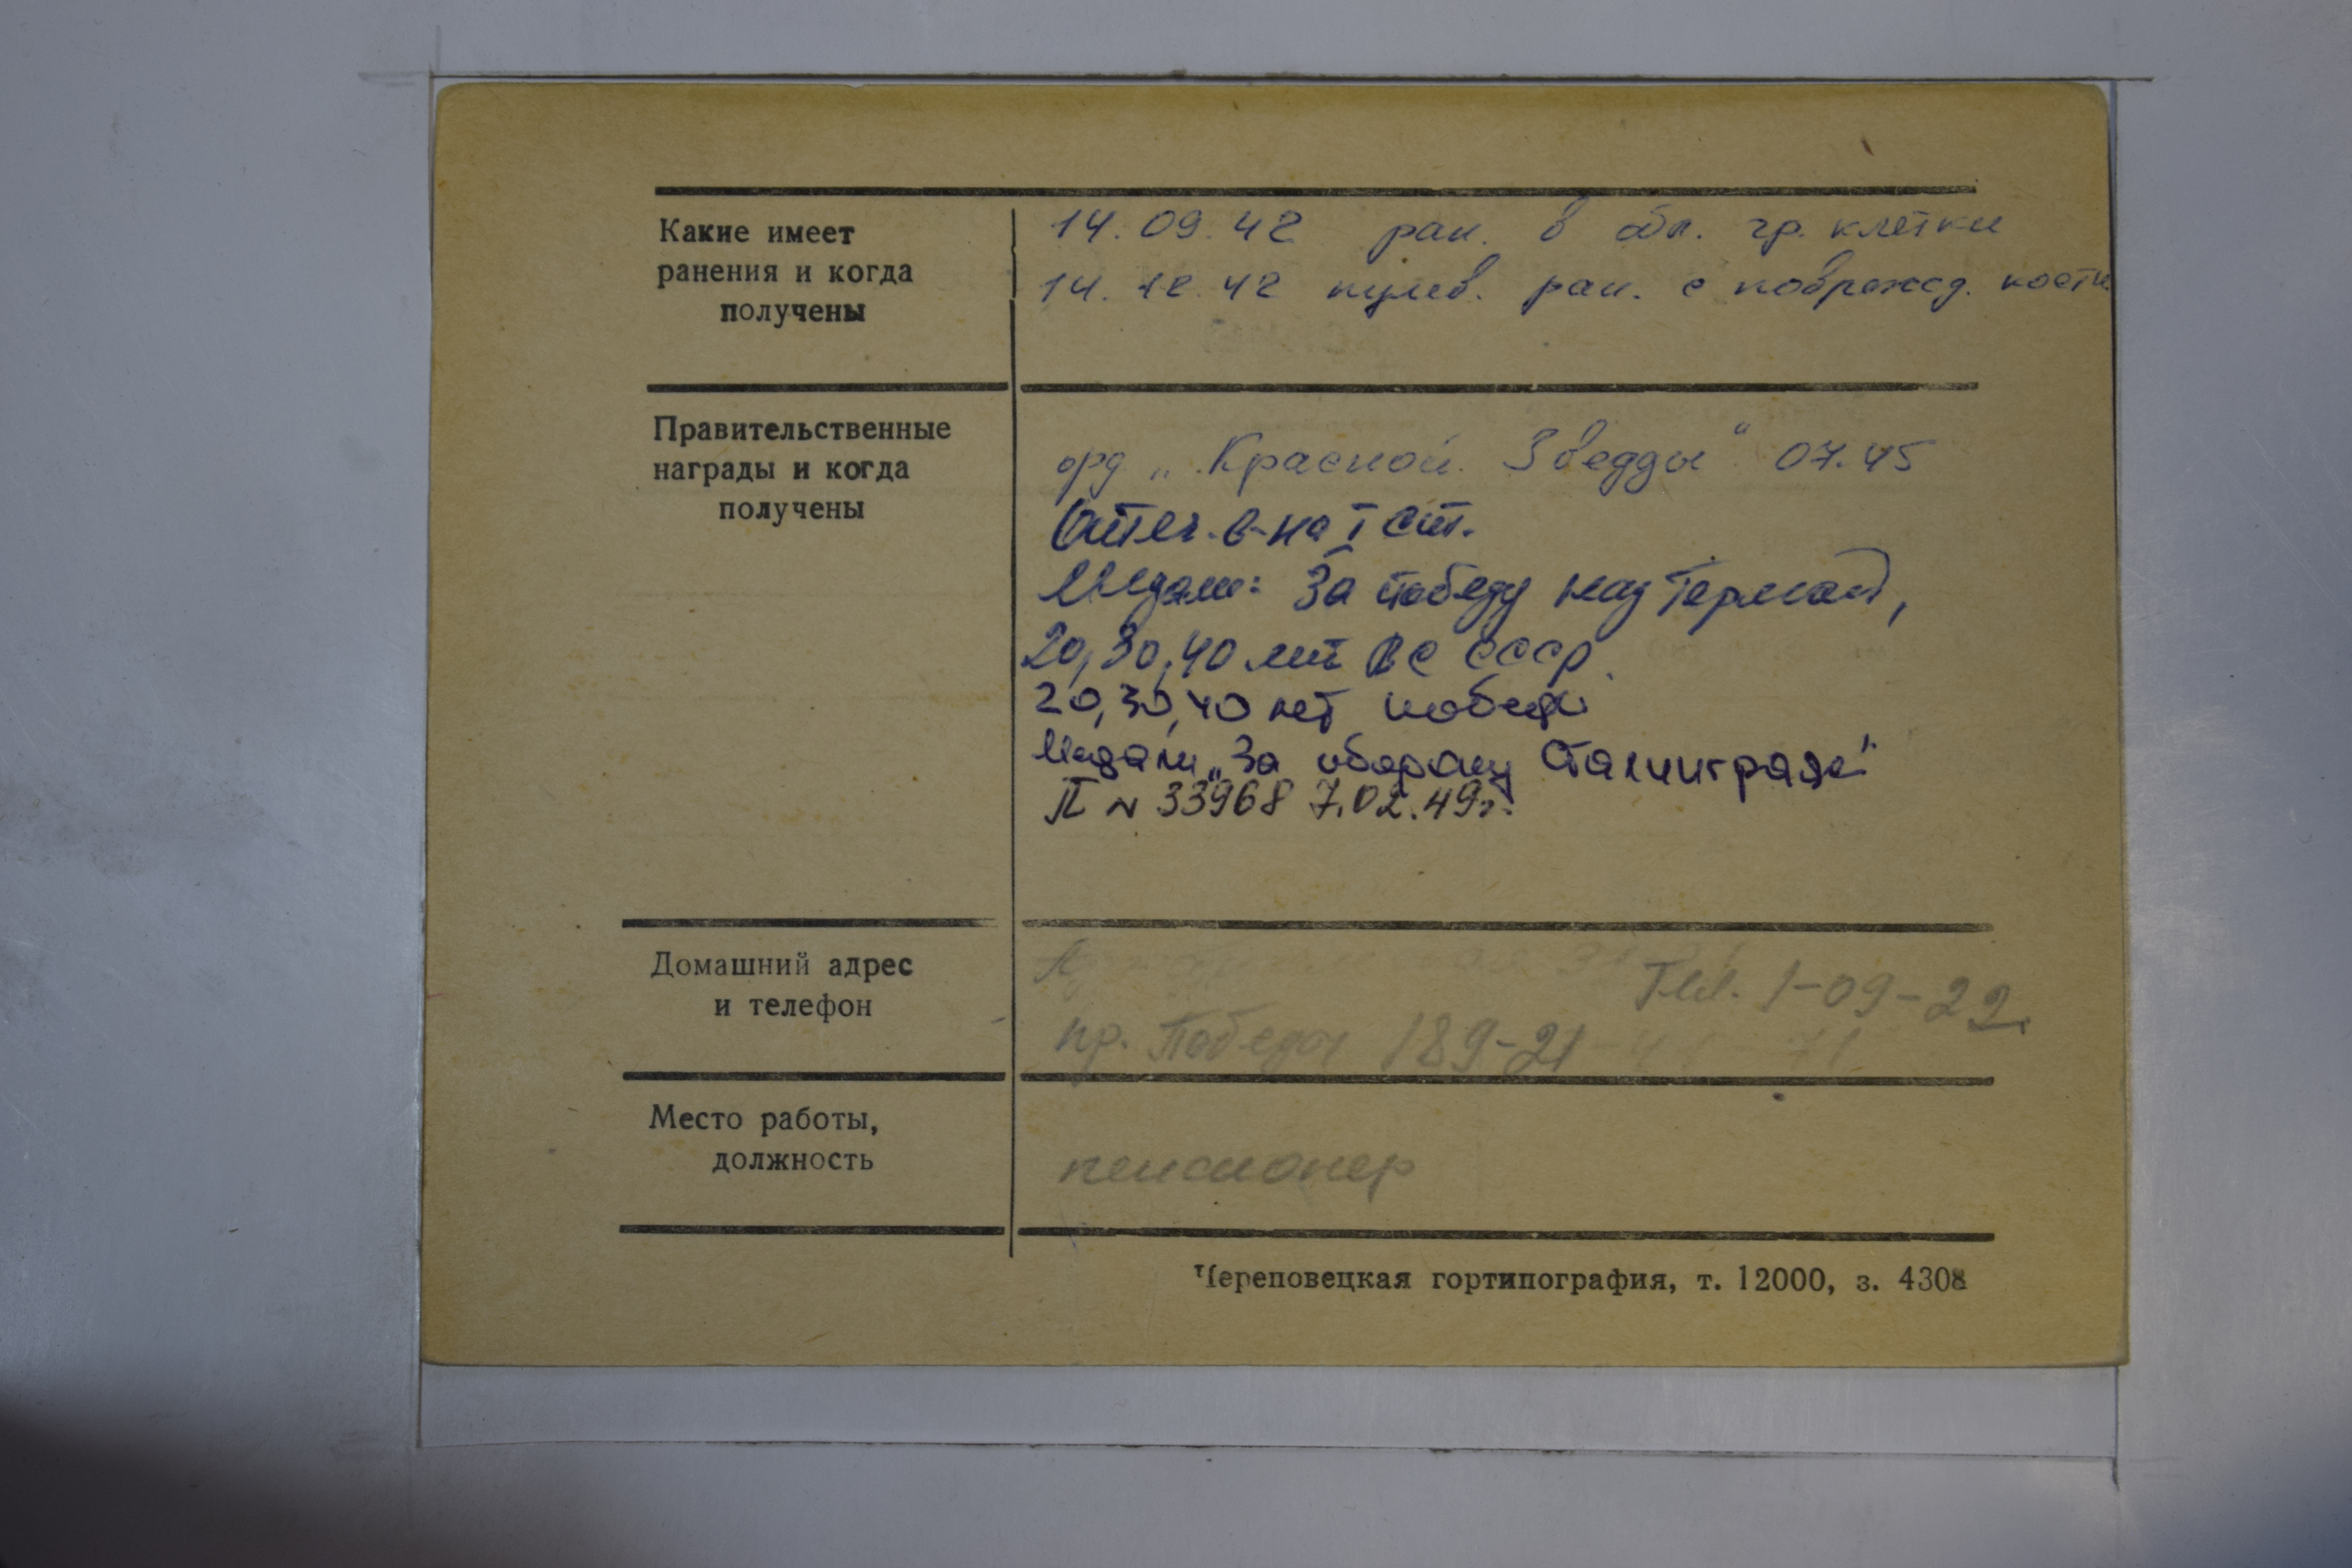 Какие имеет
ранения и когда
получены
14.09.42 ран. в обл. гр. клетки
14.12.42 пулев. ран. с поврежд. кости
Правительственные
награды и когда
получены
орд „Красной Звезды“ 07.45
Отеч. в-на I ст.
Медали: За победу над Герман,
20, 30, 40 лет ВС СССР.
20, 30, 40 лет победы
Медали „За оборону Сталинграда"
П № 33968 7.02.49г.
Домашний адрес
и телефон
Тел. 1-09-22
пр. Победы 189-21
Место работы,
должность
пенсионер
Череповецкая гортипография, т. 12000, з. 4308